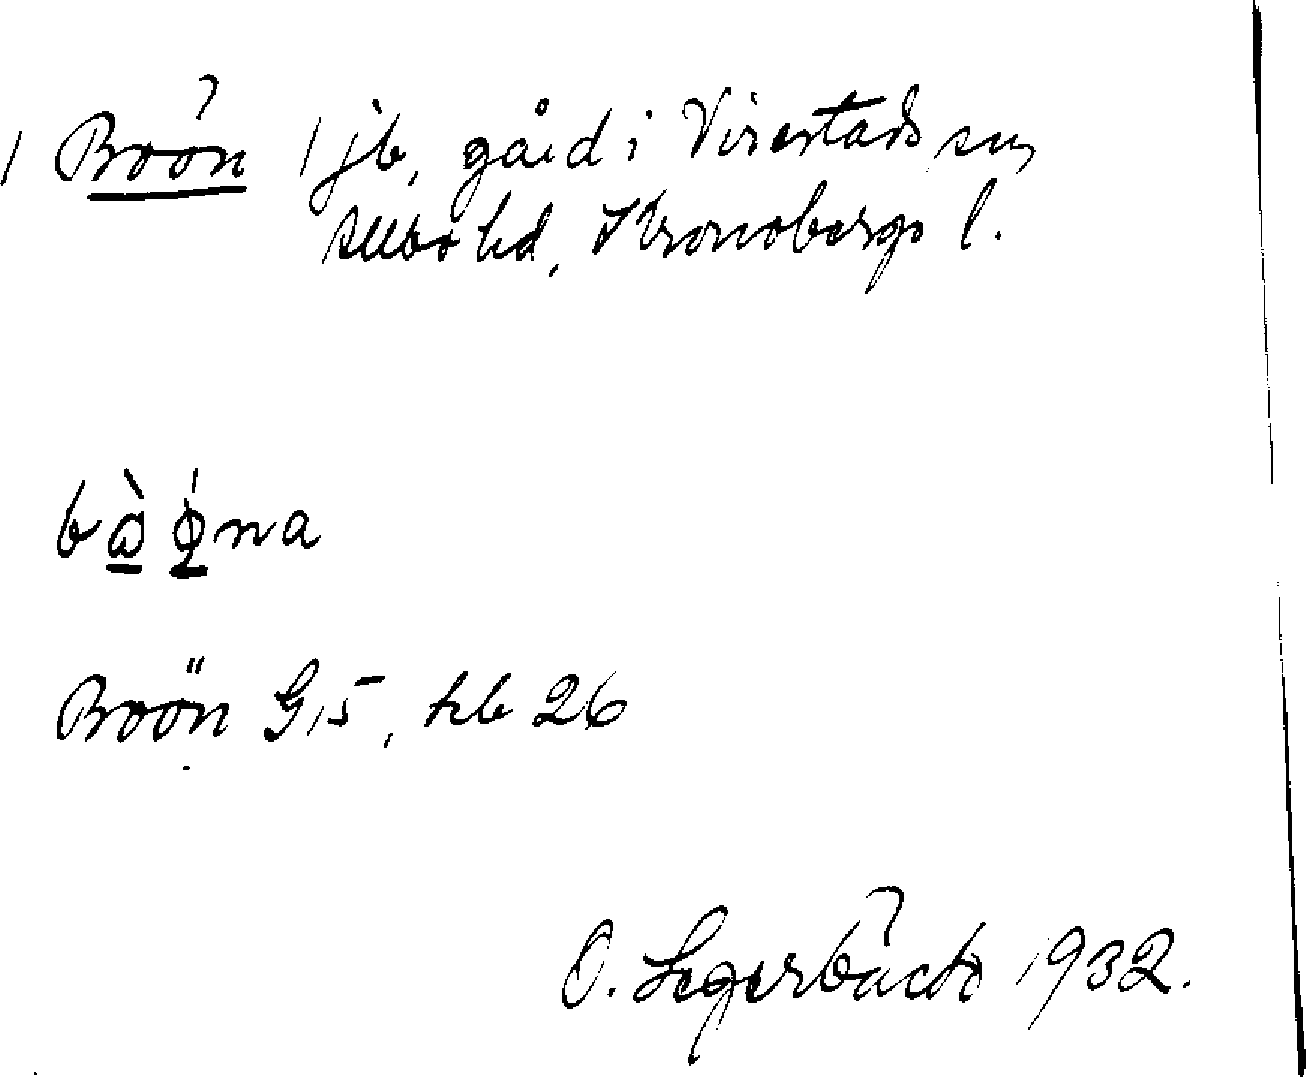 1 Boön 1 jb, gård i Virestads sn,
Allbo hd, Kronobergs l.
bà̱ ǿ̱na
Boön G, 5, kb 26
O. Segerbäck 1932.